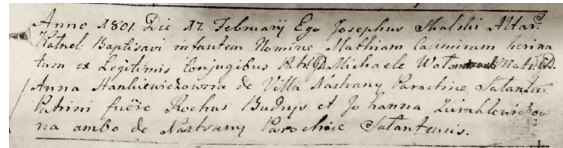 Anno 1801 Die 17 Februarij Ego Josephus Skalski Altar.
Baptisavi infantem Nomine Mathiam Casimirum herina
tum ex Legitimis Conjugibus Michaele
Anna Hankiewiczowna de Villa Nastrany Parochiæ Satanten
Patrini fuêre Rochus Budrys et Johanna
na ambo de Nastrany Parochiæ Satantensis.